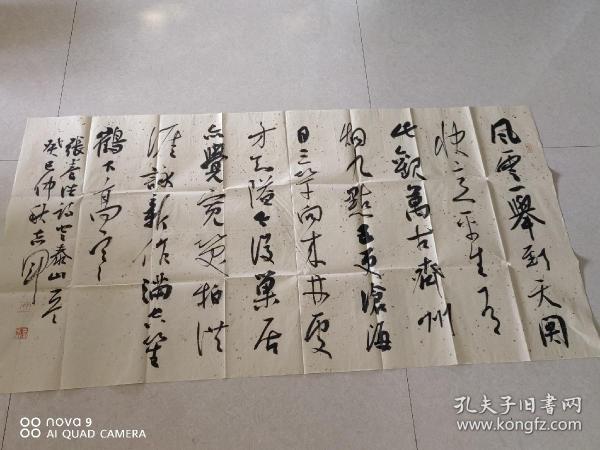 風雲一舉到天関
快意平生有
此觀萬古齊州
烟九點五更滄海
日三竿向來井處
方知隘今後巢居
亦覺寬笑拍洪
崖詠新作滿空笙
鶴下高寒
張養浩詩登泰山
癸巳仲秋
nova 9
AI QUAD CAMERA
孔夫子旧书网
www.kongfz.com